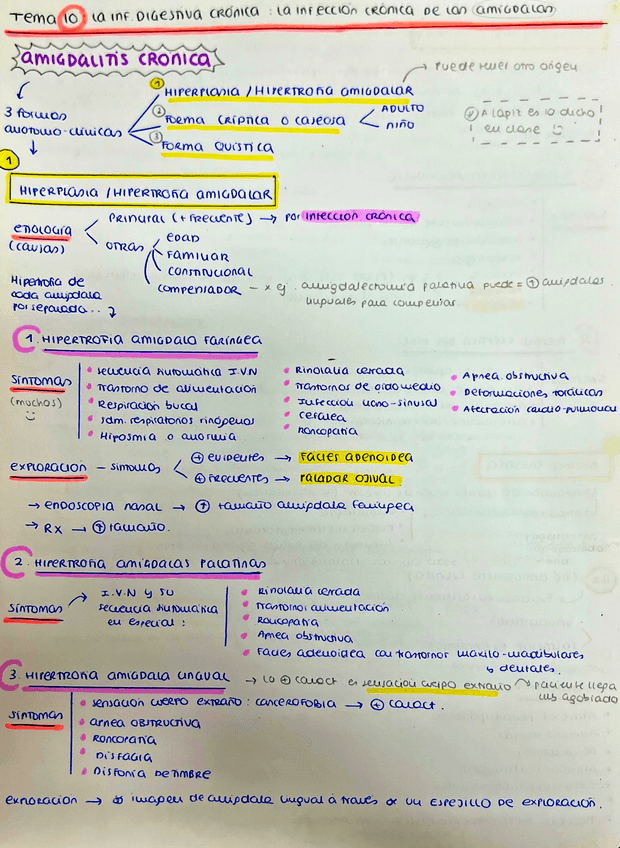 Tema 10 : LA INF. DIGESTIVA CRÓNICA : LA INFECCIÓN CRÓNICA DE LAS AMIGDALAS
AMIGDALITIS CRONICA
→ Puede tener otro origen
3 formas anatomo-clínicas
① HIPERPLASIA / HIPERTROFIA AMIGDALAR
② FORMA CRÍPTICA O CASEOSA < ADULTO
NIÑO
③ FORMA QUÍSTICA
A lápiz es lo dicho
en clase
1
HIPERPLASIA / HIPERTROFIA AMIGDALAR
ETIOLOGÍA
(causas)
PRINCIPAL (+ FRECUENTE) → por INFECCIÓN CRÓNICA
OTRAS
EDAD
FAMILIAR
CONSTITUCIONAL
COMPENSADOR – x ej. amigdalectomía palatina puede = ↑ amígdalas
linguales para compensar.
Hipertrofia de
cada amígdala
por separado..
1. HIPERTROFIA AMIGDALA FARÍNGEA
SÍNTOMAS
(muchos)
• Secuencia Automática I.V.N
• Trastorno de alimentación
• Respiración bucal
• Sdm. respiratorios rinógenos
• Hiposmia o anosmia
• Rinolalia cerrada
• Trastornos de oído medio
• Infección naso-sinusal
• Cefalea
• Roncopatía
• Apnea obstructiva
• Deformaciones torácicas
• Afectación cardio-pulmonar
EXPLORACIÓN – síntomas
⊕ EVIDENTES → FACIES ADENOIDEA
⊕ FRECUENTES → PALADAR OJIVAL
→ ENDOSCOPIA NASAL → ↑ tamaño amígdala faríngea
→ RX → ↑ tamaño.
2. HIPERTROFIA AMIGDALAS PALATINAS
SÍNTOMAS
I.V.N y su
secuencia Automática
en especial :
• Rinolalia cerrada
• Trastorno alimentación
• Roncopatía
• Apnea obstructiva
• Facies adenoidea con trastornos maxilo-mandibulares
y dentales.
3. HIPERTROFIA AMIGDALA LINGUAL → lo ⊕ caract es sensación cuerpo extraño
paciente llega
agobiado
SÍNTOMAS
• sensación cuerpo extraño : CANCEROFOBIA → ⊕ caract.
• APNEA OBSTRUCTIVA
• RONCOPATÍA
• DISFAGIA
• DISFONIA DE TIMBRE
EXPLORACIÓN → imagen de amígdala lingual a través de un ESPEJILLO DE EXPLORACIÓN.